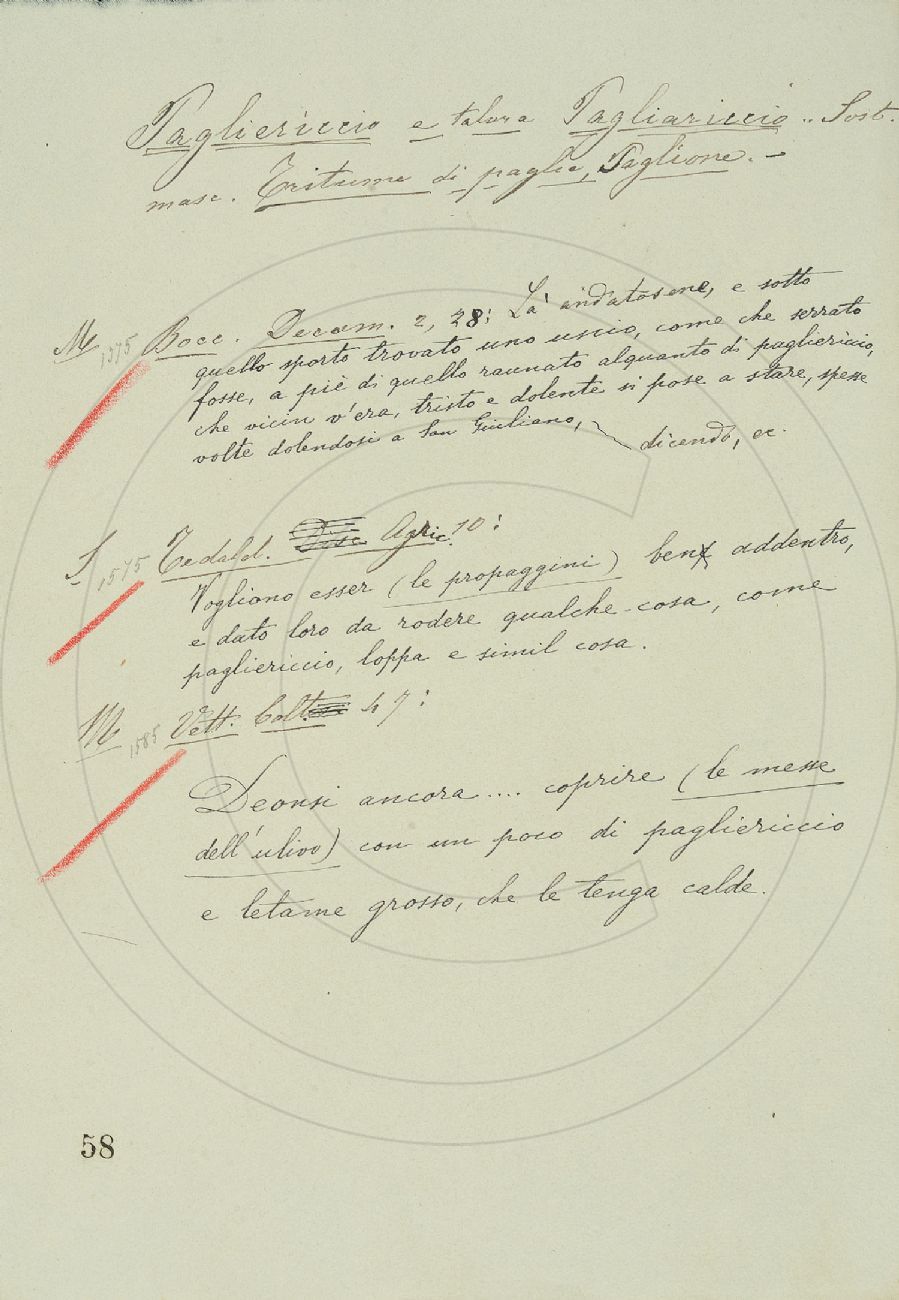 Pagliericcio e talora Pagliariccio.. Sost.
masc. Tritume di paglia, Paglione. –
M 1375 Bocc. Decam. 2, 28: Là andatosene, e sotto
quello sporto trovato uno uscio, come che serrato
fosse, a piè di quello raunato alquanto di pagliericcio,
che vicin v'era, tristo e dolente si pose a stare, spesse
volte dolendosi a San Giuliano, dicendo, ec.
S 1575 Tedald. Agric. 10:
Vogliono esser (le propaggini) ben addentro,
e dato loro da rodere qualche cosa, come
pagliericcio, loppa e simil cosa.
M 1585 Vett. Colt. 47:
Deonsi ancora .... coprire (le messe
dell'ulivo) con un poco di pagliericcio
e letame grosso, che le tenga calde.
58